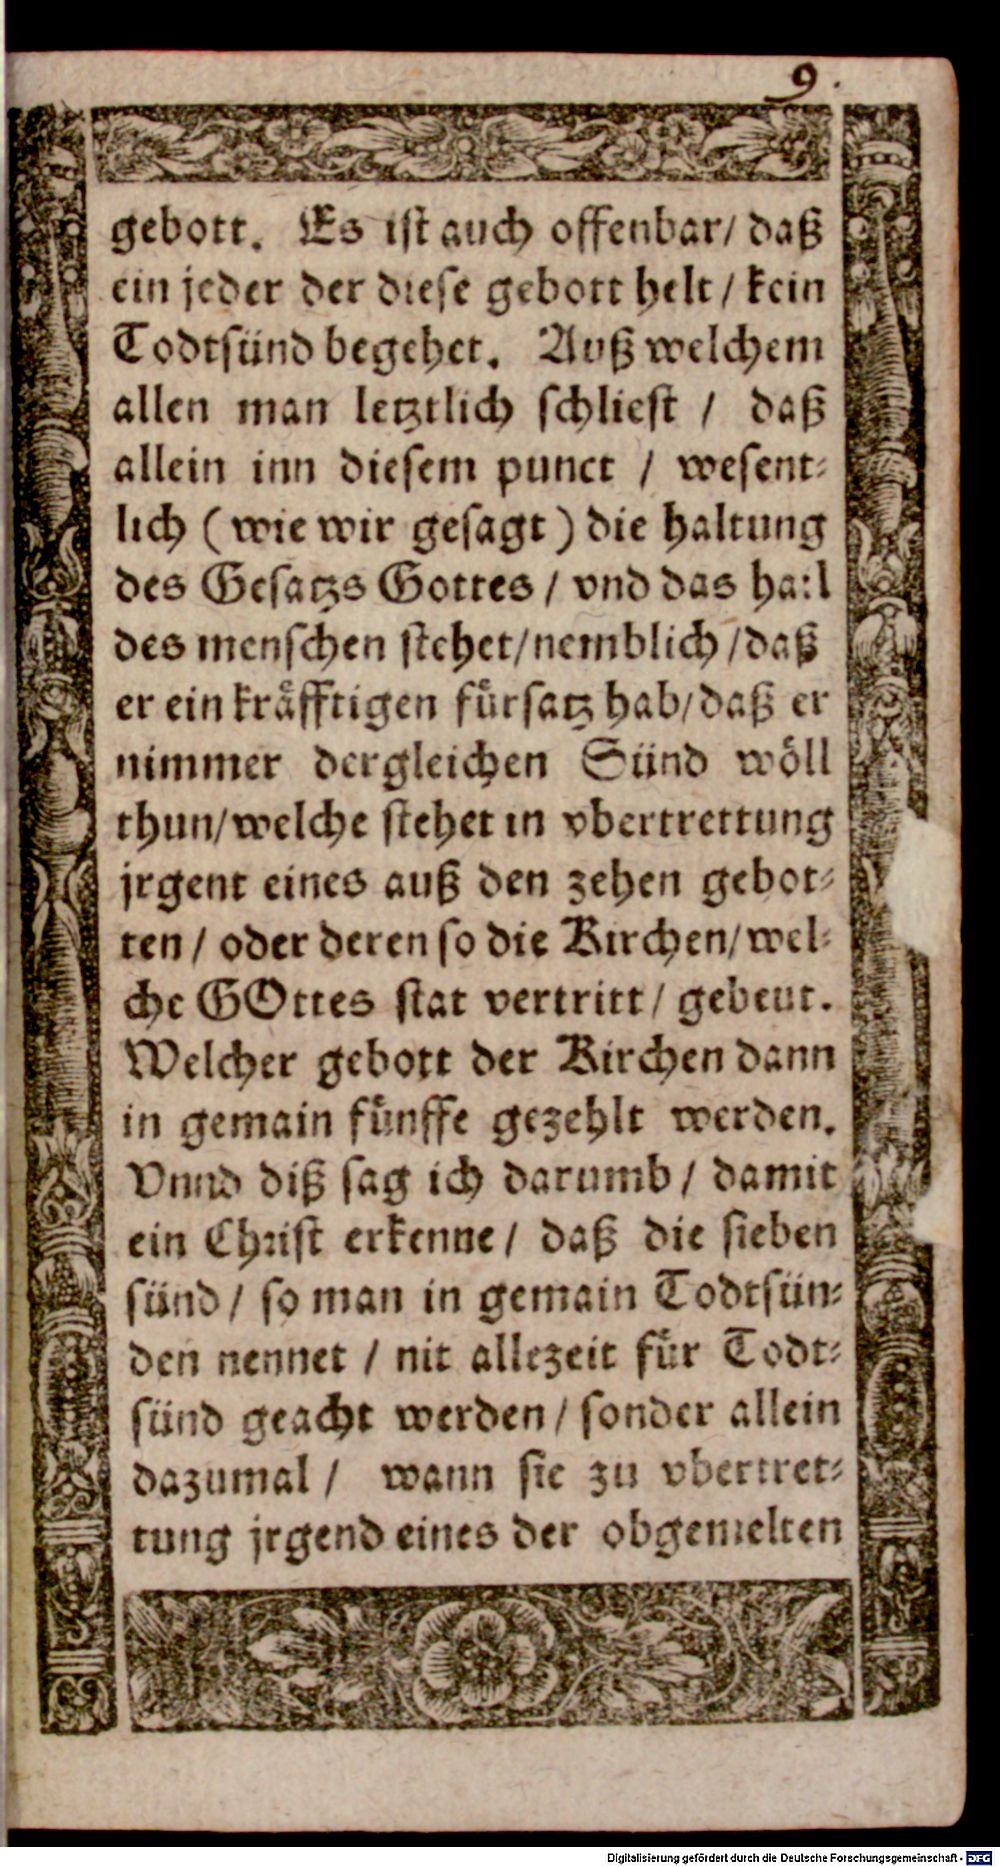 9.
gebott. Es ist auch offenbar/ daß
ein jeder der diese gebott helt / kein
Todtsünd begehet. Auß welchem
allen man letztlich schliest / daß
allein inn diesem punct / wesent-
lich (wie wir gesagt) die haltung
des Gesatzs Gottes / vnd das hail
des menschen stehet/nemblich/daß
er ein kräfftigen fürsatz hab/daß er
nimmer dergleichen Sünd wöll
thun/welche stehet in vbertrettung
jrgent eines auß den zehen gebot-
ten / oder deren so die Kirchen/wel-
che GOttes stat vertritt/ gebeut.
Welcher gebott der Kirchen dann
in gemain fünffe gezehlt werden.
Vnnd diß sag ich darumb / damit
ein Christ erkenne / daß die sieben
sünd / so man in gemain Todtsün-
den nennet / nit allezeit für Todt-
sünd geacht werden / sonder allein
dazumal / wann sie zu vbertret-
tung jrgend eines der obgemelten
Digitalisierung gefördert durch die Deutsche Forschungsgemeinschaft - DFG